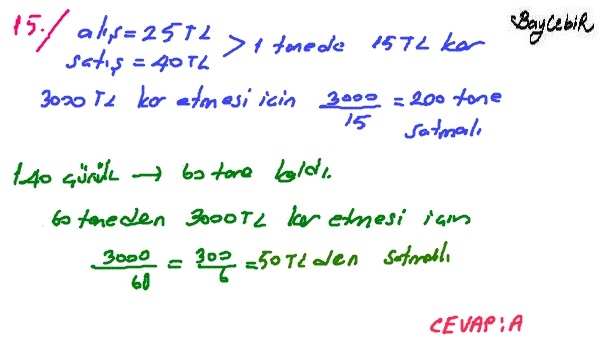 BayCebiR
15./ alış=25TL
satış=40TL > 1 tanede 15TL kar
3000TL kar etmesi icin 3000/15 = 200 tane satmalı
140 çürük → 60 tane kaldı.
60 taneden 3000TL kar etmesi icin
3000/60 = 300/6 = 50TL den satmalı
CEVAP:A